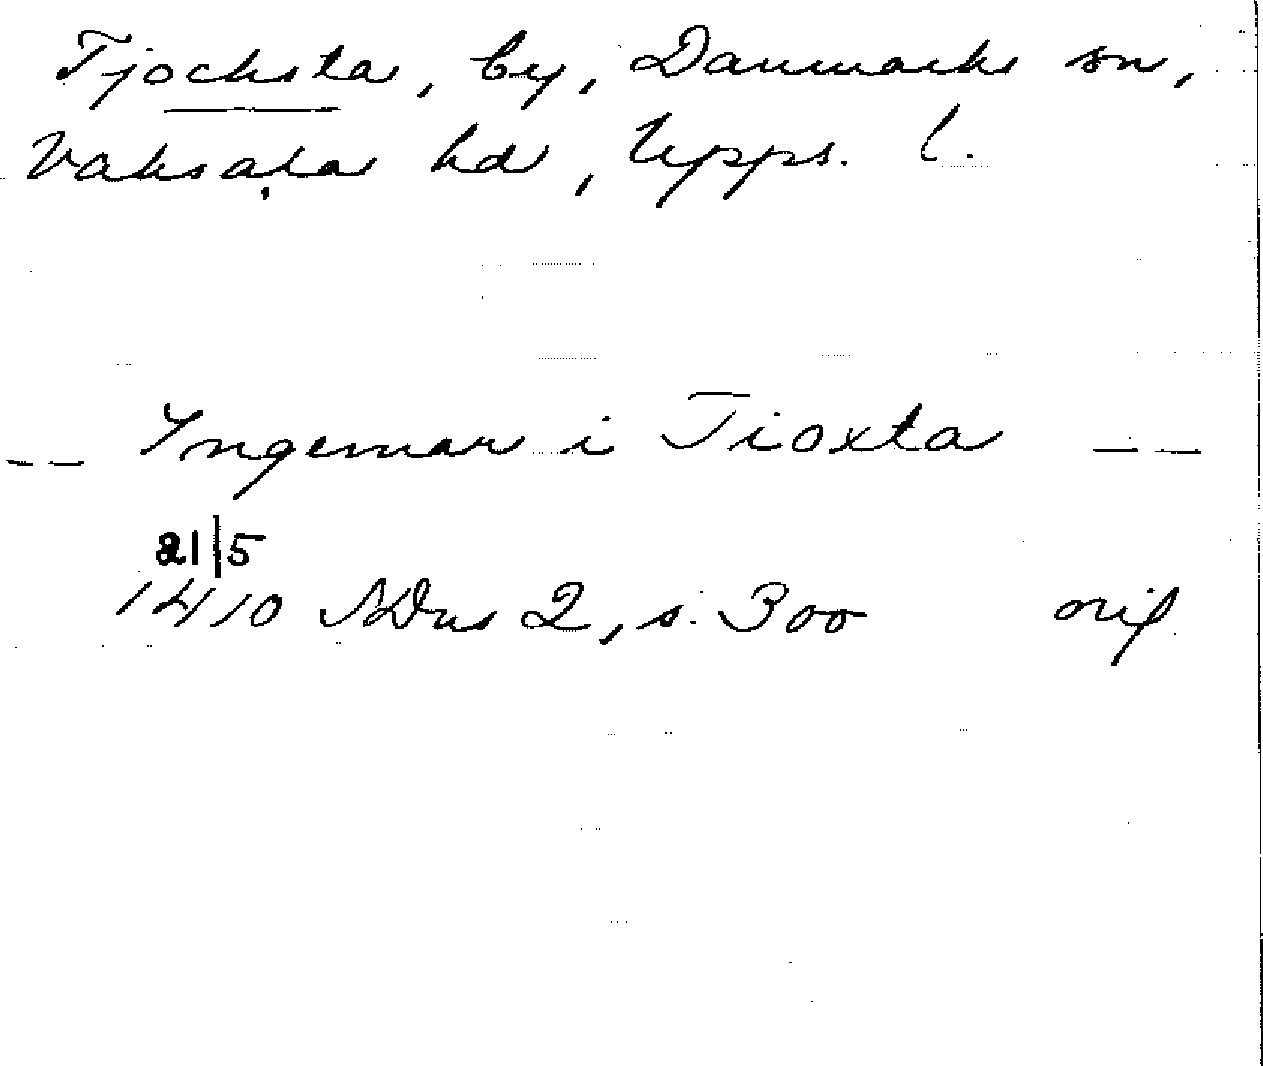 Tjocksta, by, Danmarks sn,
Vaksala hd, Upps. l.
-- Ingemar i Tioxta --
21/5
1410 SDns 2, s. 300 orig